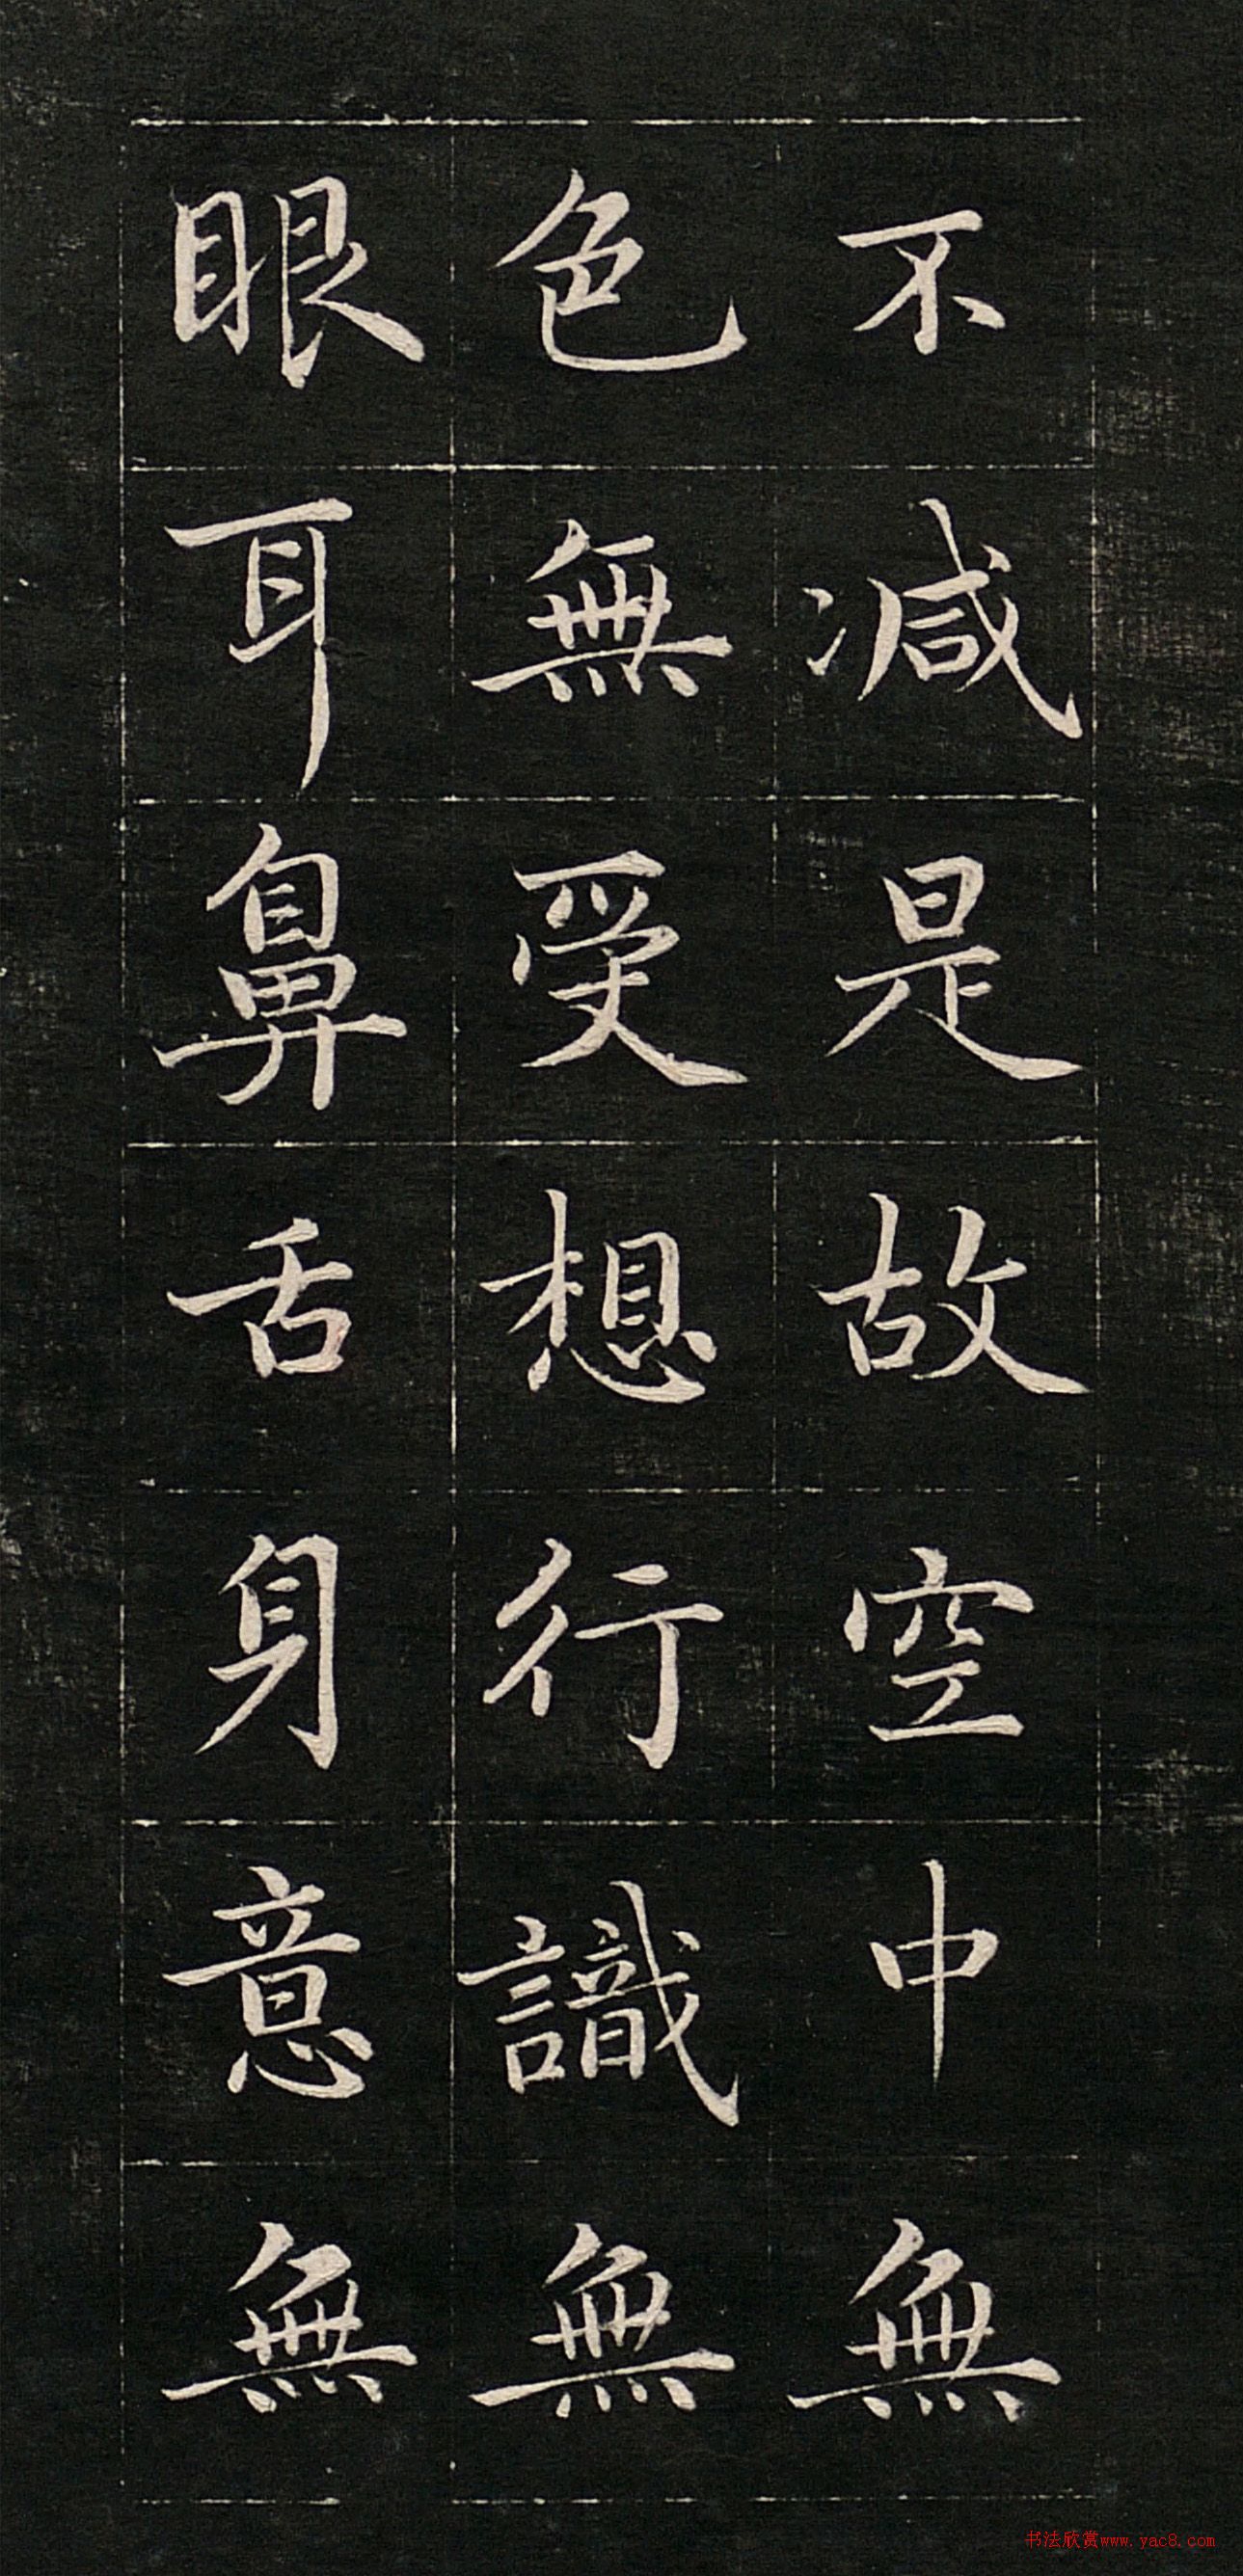 不減是故空中無
色無受想行識無
眼耳鼻舌身意無
书法欣赏www.yac8.com